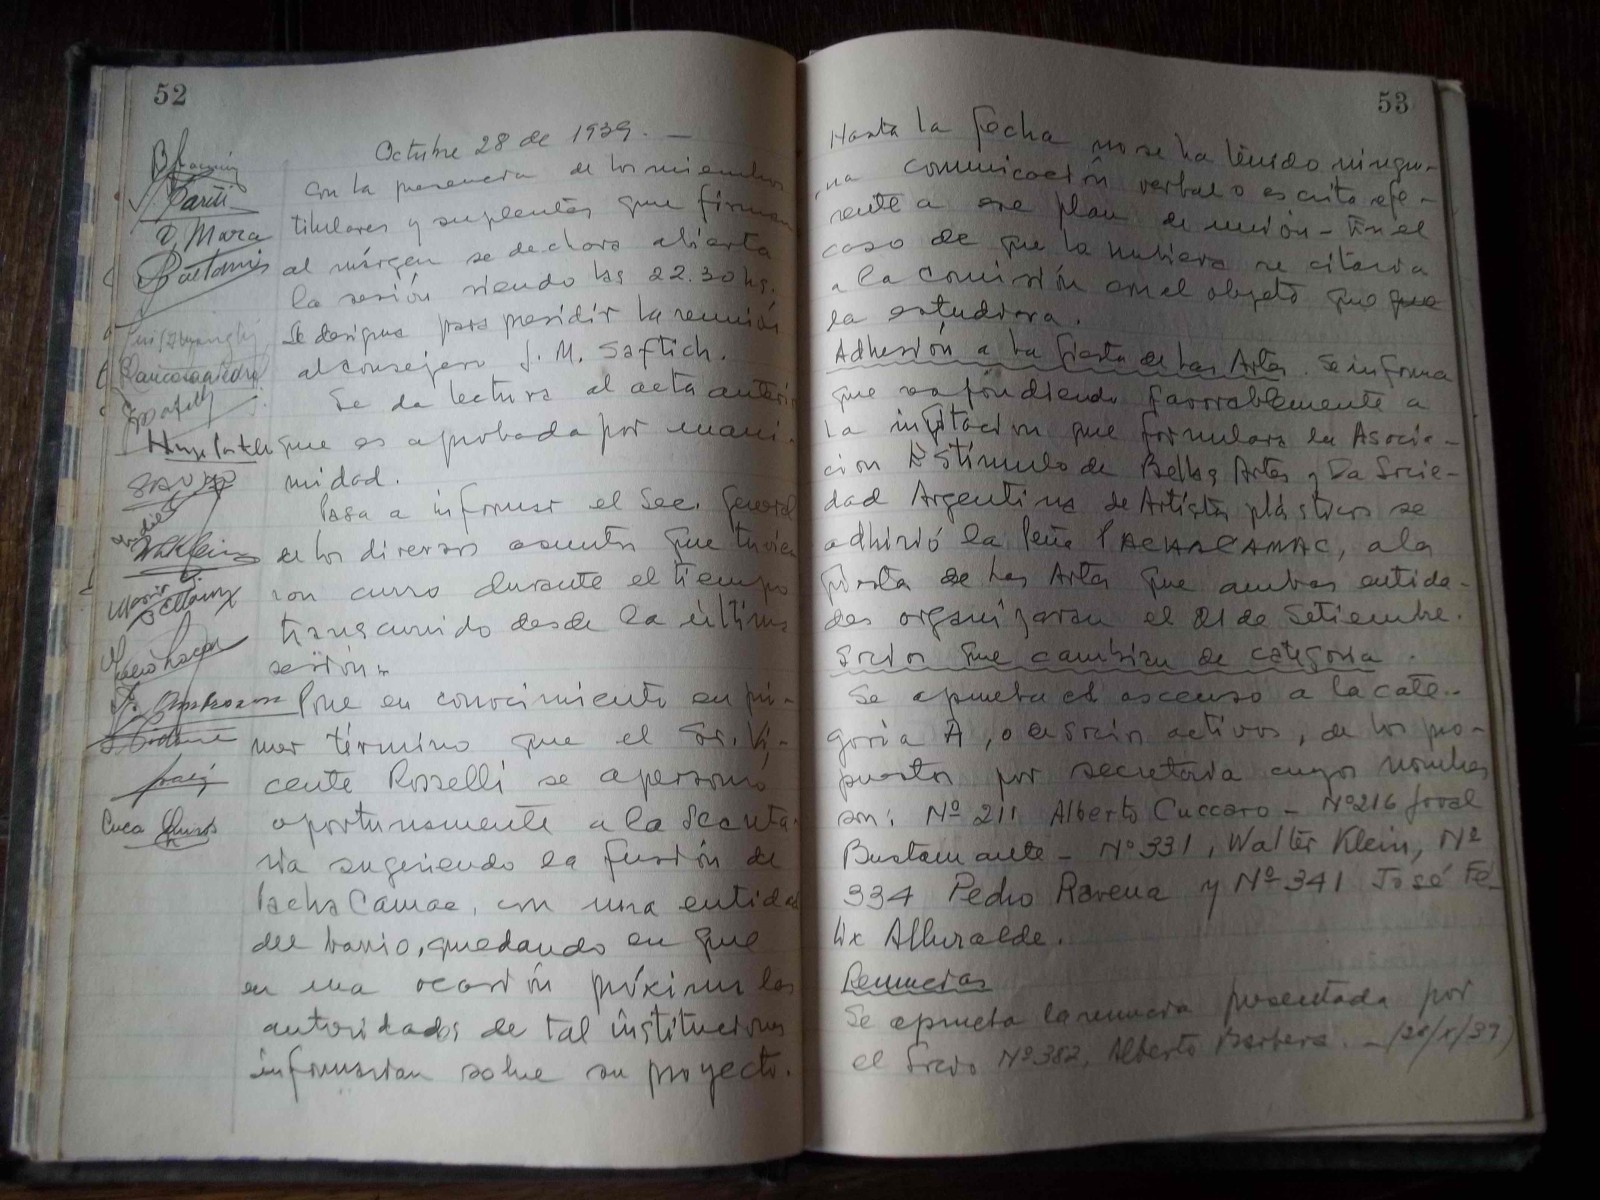 52
Octubre 28 de 1939. —
Con la presencia de los miembros
titulares y suplentes que firman
al márgen se declara abierta
la sesión siendo las 22.30 hs.
Se designa para presidir la reunión
al consejero J. M. Saftich.
Se da lectura al acta anterior
que es aprobada por unani-
midad.
Pasa a informar el Sec. General
de los diversos asuntos que tuvie
ron curso durante el tiempo
transcurrido desde la última
sesión.
Pone en conocimiento en pri-
mer término que el Sr. Vi-
cente Rosselli se apersonó
oportunamente a la Secreta-
ria sugeriendo la fusión de
PachaCamac, con una entidad
del barrio, quedando en que
en una ocasión próxima las
autoridades de tal institucion
informarian sobre su proyecto.
V. Pariti
D. Mara
Walter Klein
Cuca Quiros
53
Hasta la fecha no se ha tenido ningu-
na comunicación verbal o escrita refe-
rente a ese plan de unión - En el
caso de que la hubiera se citaria
a la Comisión con el objeto que que
la estudiara.
Adhesión a la Fiesta de las Artes. Se informa
que respondiendo favorablemente a
la invitacion que formulara la Asocia-
cion Estímulo de Bellas Artes y La Socie-
dad Argentina de Artistas plásticos se
adhirió la Peña PACHACAMAC, a la
fiesta de las Artes que ambas entida-
des organizaran el 21 de Setiembre.
Socios que cambian de categoria.
Se aprueba el ascenso a la cate-
goria A, o en socios activos, de los pro-
puestos por secretaria cuyos nombres
son: Nº 211 Alberto Cuccaro - Nº 216
Bustamante - Nº 331, Walter Klein, Nº
334 Pedro Ravena y Nº 341 José Fé-
lix Alluralde.
Renuncias
Se aprueba la renuncia presentada por
el Socio Nº 382, Alberto Barbera. - (28/X/39)